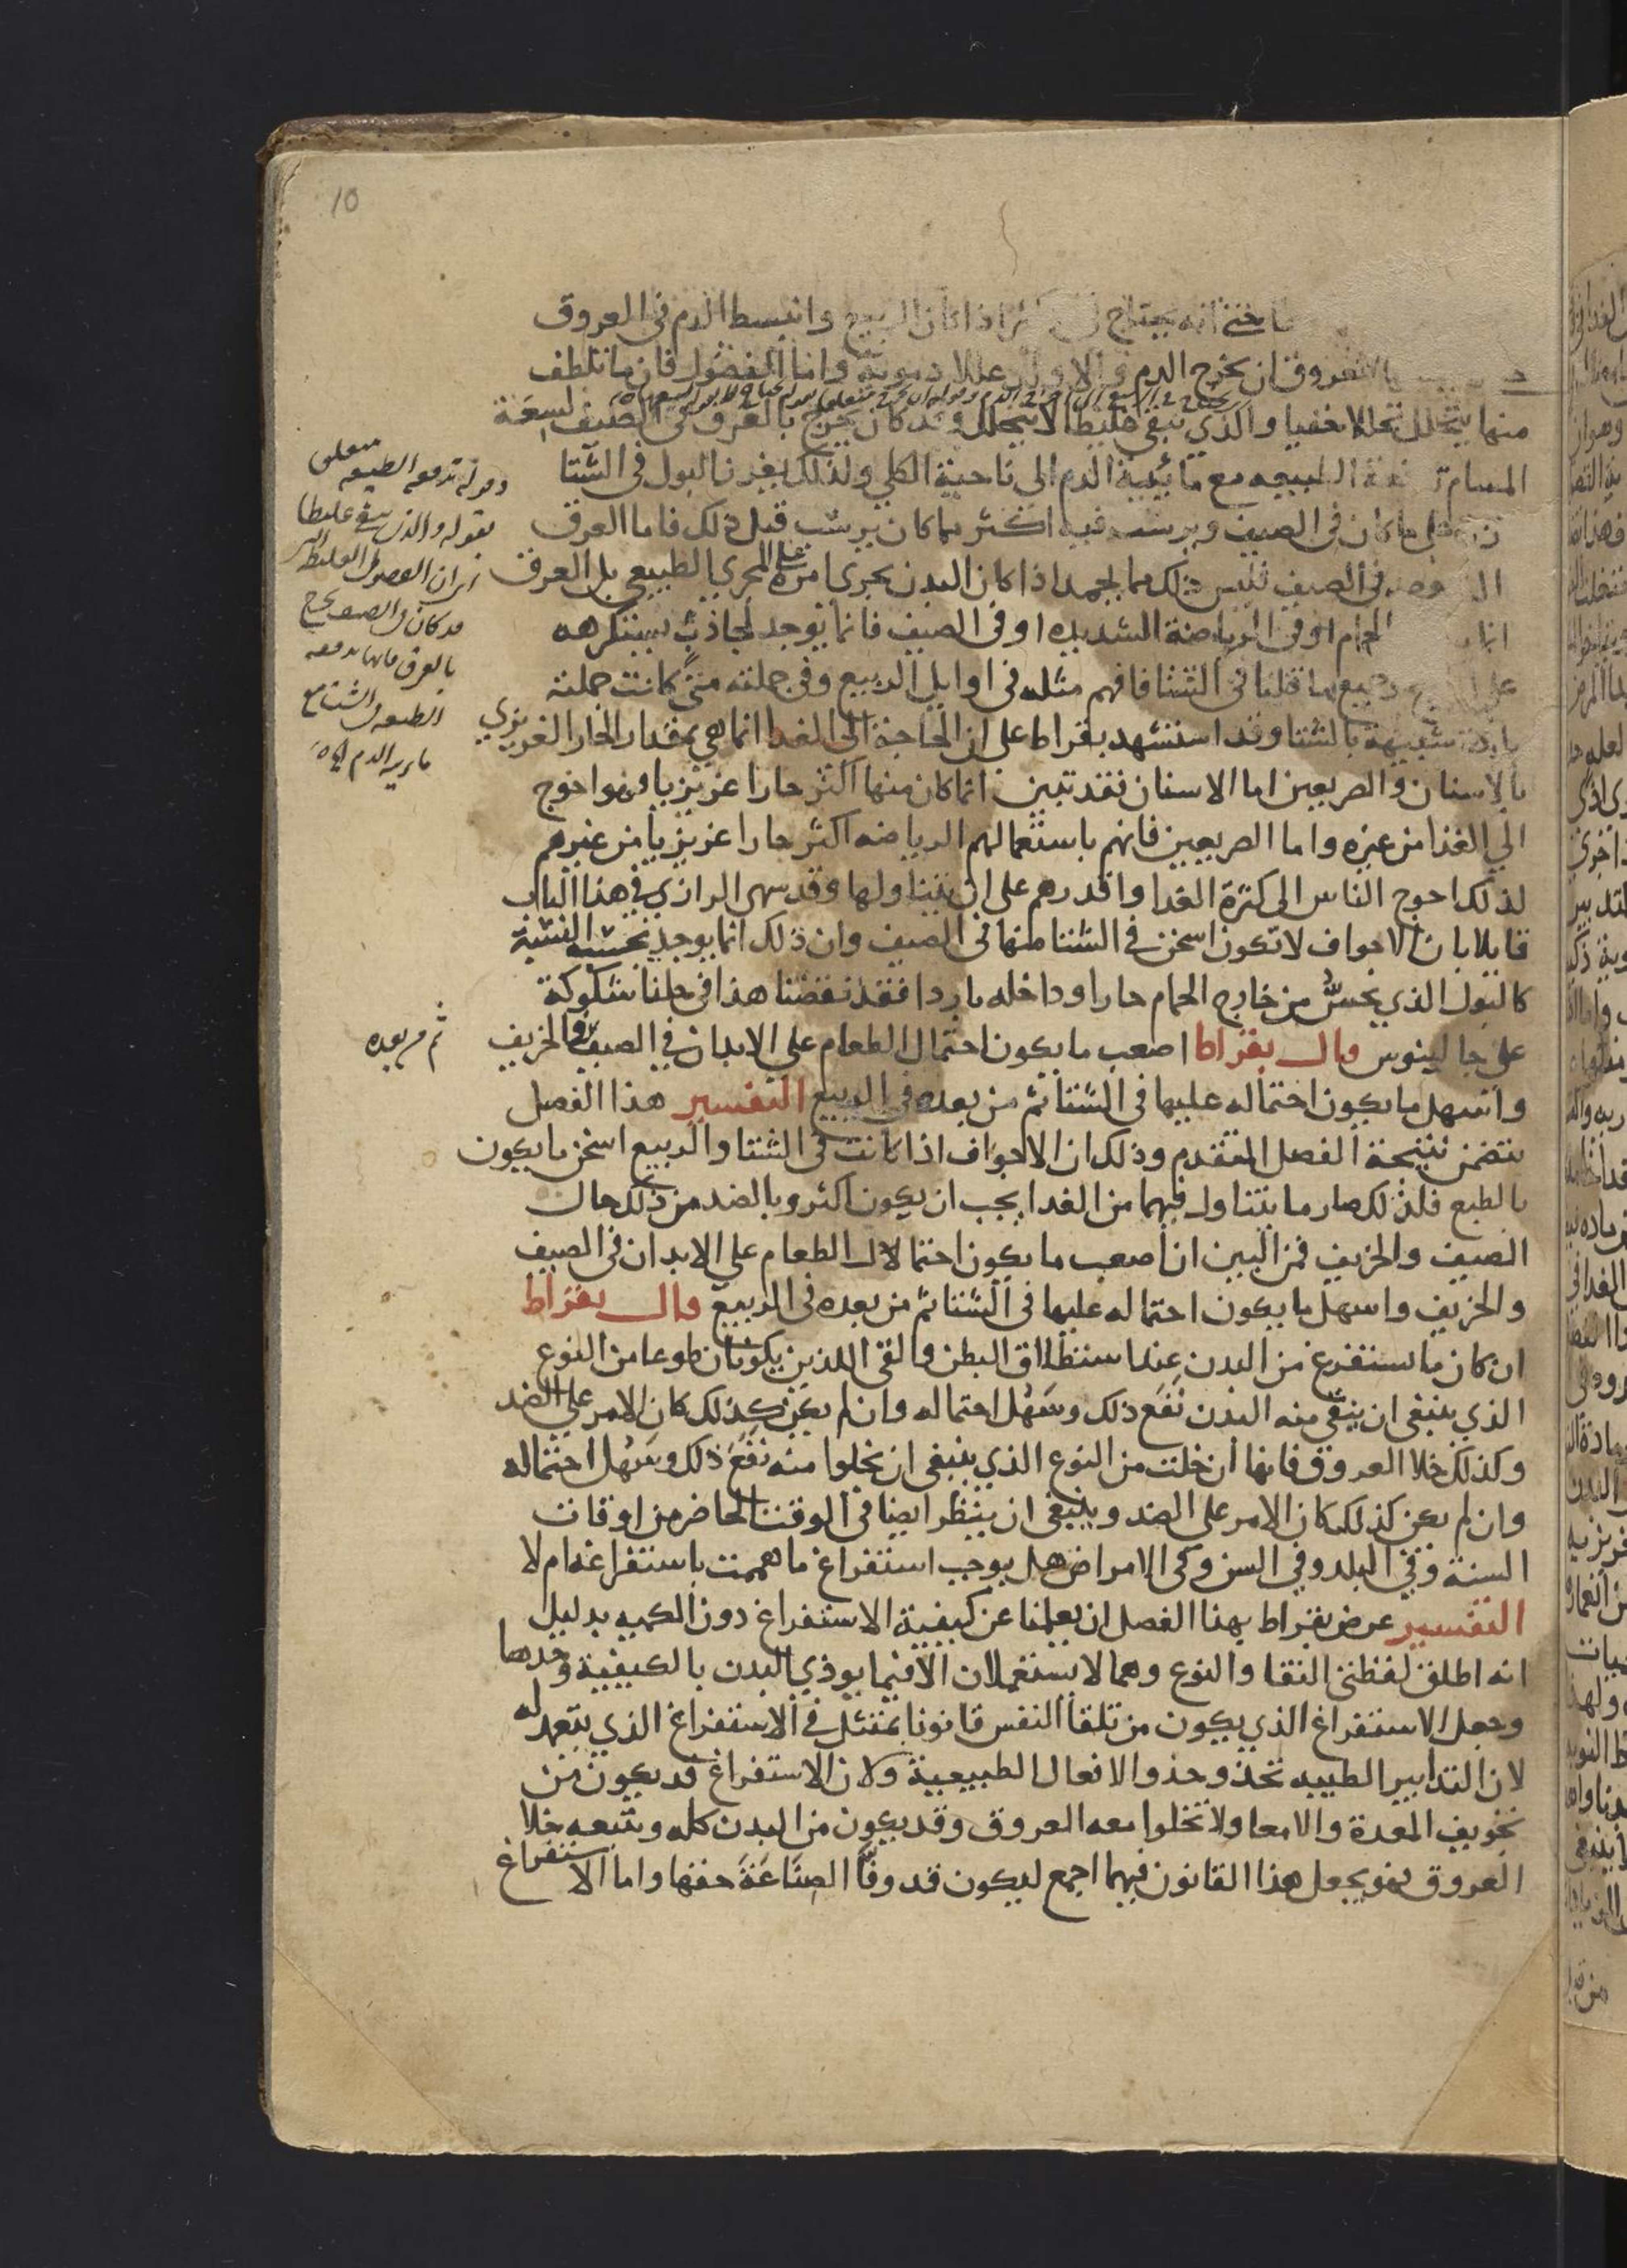 10
انه يحتاج اذا كان الربيع وانبسط الدم في العروق
العروق ان يخرج الدم واما الفضول فان ما تلطف
منها يتحلل تحللا خفيا والذي يبقى غليظا لا يتحلل وقد كان يخرج بالعرق في الصيف لسعة
المسام الطبيعه مع مائية الدم الى ناحية الكلي ولذلك يغزر البول في الشتا
ما كان في الصيف ويرسب فيه اكثر مما كان يرسب قبل ذلك فاما العرق
في الصيف فليس ذلك مما يحمد اذا كان البدن يجري امره على المجري الطبيعي بل العرق
الحمام او في الرياضة الشديده او في الصيف فانما يوجد لحادث يستكرهه
وجميع ما قلنا في الشتا فافهم مثله في اوايل الربيع وفي جملته متى كانت جملته
باردة شبيهة بالشتا وقد استشهد بقراط على ان الحاجة الى الغدا انما هي بمقدار الحار الغريزي
بالاسنان والصريعين اما الاسنان فقد تبين ان ما كان منها اكثر حارا غريزيا فهو احوج
الي الغذا من غيره واما الصريعين فانهم باستعمالهم الرياضه اكثر حارا غريزيا من غيرهم
لذلك احوج الناس الى كثرة الغدا واقدرهم على ان يتناولها وقد سهى الرازي في هذا الباب
قايلا بان الاجواف لا تكون اسخن في الشتا منها في الصيف وان ذلك انما يوجد بحسب النسبة
كالبول الذي يحس من خارج الحمام حارا وداخله باردا فقد نقضنا هذا في حلنا شكوكه
على جالينوس قال بقراط اصعب ما يكون احتمال الطعام على الابدان في الصيف والخريف
واسهل ما يكون احتماله عليها في الشتا ثم من بعده في الربيع التفسير هذا الفصل
يتضمن نتيجة الفصل المتقدم وذلك ان الاجواف اذا كانت في الشتا والربيع اسخن ما يكون
بالطبع فلذلك صار ما يتناول فيهما من الغدا يجب ان يكون اكثر وبالضد من ذلك حال
الصيف والخريف فمن البين ان اصعب ما يكون احتمالا للطعام على الابدان في الصيف
والخريف واسهل ما يكون احتماله عليها في الشتا ثم من بعده في الربيع قال بقراط
ان كان ما يستفرغ من البدن عند استطلاق البطن والقي اللذين يكونان طوعا من النوع
الذي ينبغي ان ينقى منه البدن نفع ذلك وسهل احتماله وان لم يكن كذلك كان الامر على الضد
وكذلك خلا العروق فانها ان خلت من النوع الذي ينبغي ان تخلوا منه نفع ذلك وسهل احتماله
وان لم يكن كذلك كان الامر على الضد وينبغي ان ينظر ايضا في الوقت الحاضر من اوقات
السنة وفي البلد وفي السن وفي الامراض هل يوجب استفراغ ما هممت باستفراغه ام لا
التفسير غرض بقراط بهذا الفصل ان يعلمنا عن كيفية الاستفراغ دون الكميه بدليل
انه اطلق لفظتي النقا والنوع وهما لا يستعملان الا فيما يوذي البدن بالكيفية وحدها
وجعل الاستفراغ الذي يكون من تلقا النفس قانونا يمتثل في الاستفراغ الذي يتعمد له
لان التدابير الطبيه تحذو حذو الافعال الطبيعية ولان الاستفراغ قد يكون من
تجويف المعدة والامعا ولا تخلوا معه العروق وقد يكون من البدن كله ويتبعه خلا
العروق فهو يجعل هذا القانون فيهما اجمع ليكون قد وفا الصناعة حقها واما الاستفراغ
وقوله تدفعه الطبيعه متعلق
بقوله والذي يبقى غليظا
اي ان الفضول الغليظ التي
قد كان في الصيف يخرج
بالعرق فانها تدفعه
الطبيعه في الشتا مع
مايية الدم
ثم من بعده